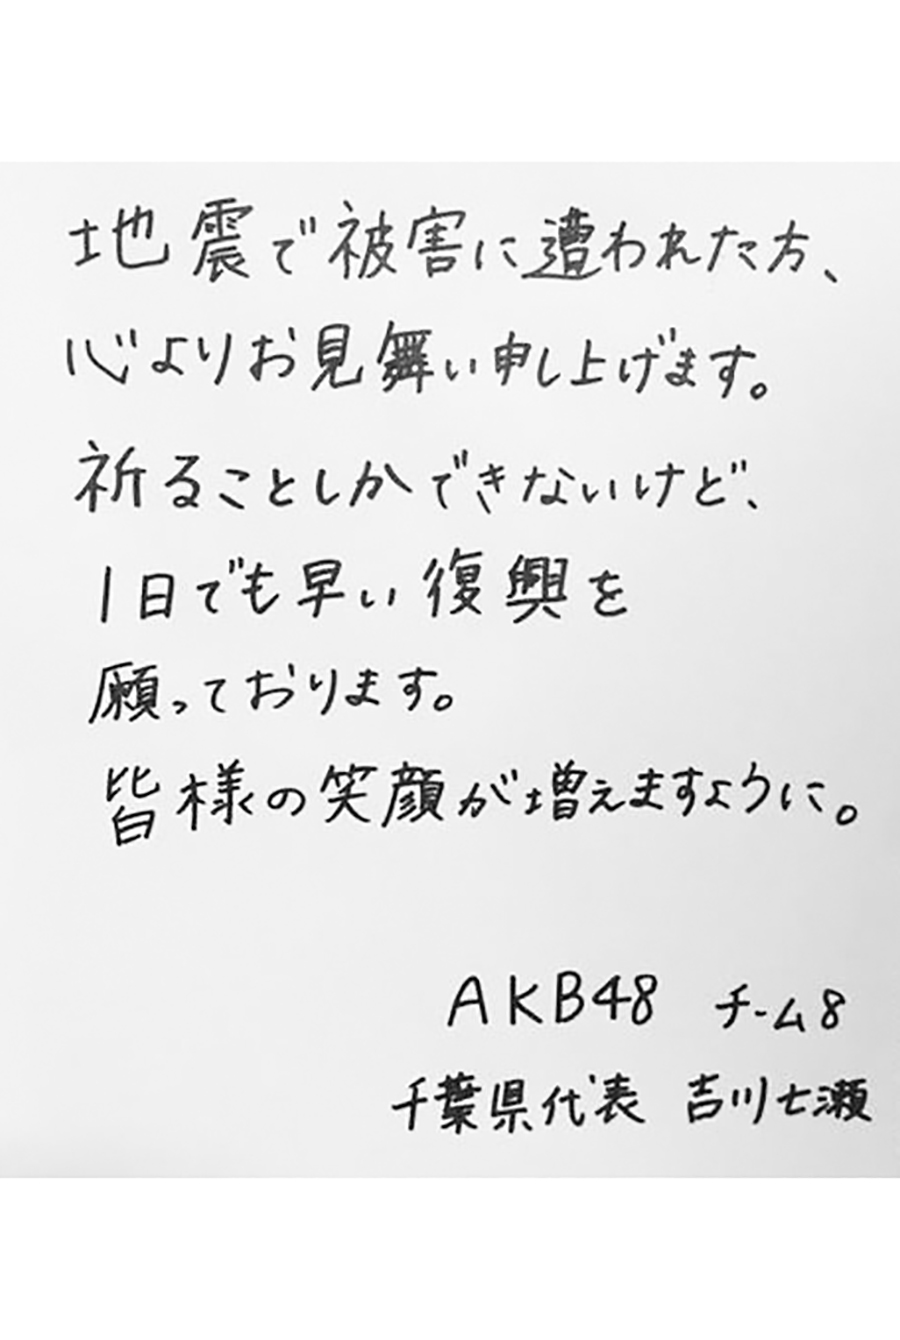 地震で被害に遭われた方、
心よりお見舞い申し上げます。
祈ることしかできないけど、
1日でも早い復興を
願っております。
皆様の笑顔が増えますように。
AKB48 チーム8
千葉県代表 吉川七瀬